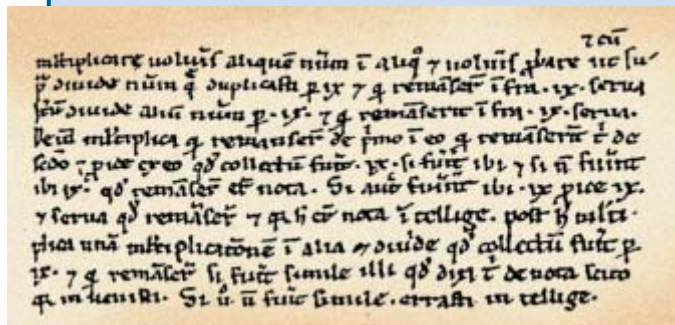 ⁊ cū
mltiplicare uoluis aliquē nūm ī aliqº ⁊ uoluis ꝓbare ut su
diuide nūm q̄ duplicasti ꝑ ix ⁊ remāser̄ ī . ix. serua
diuide aliū nūm ꝑ . ix. ⁊ remāserit ī . ix. serua.
Deīd mltiplica remanser̄ de p̄mo ī eo remāserit̄ de
scdo ⁊ ꝓice ex eo qd̄ collectū fuit̄ . ix. si fuīt̄ ibi ⁊ si n̄ fuīnt
ibi ix. qd̄ remāser̄ nota. Si aut̄ fuīnt̄ ibi . ix ꝓice ix.
⁊ serua qd̄ remāser̄ ⁊ nota ītellige. post h̄ mlti
plica unā mltiplicatōnē ī alia ⁊ diuide qd̄ collectū fuit̄ ꝑ
ix. ⁊ remāser̄ si fuit̄ simile illi qd̄ dixi t̄ de nota scito
inuenisti. Si uº n̄ fuit̄ simile. errasti intellige.